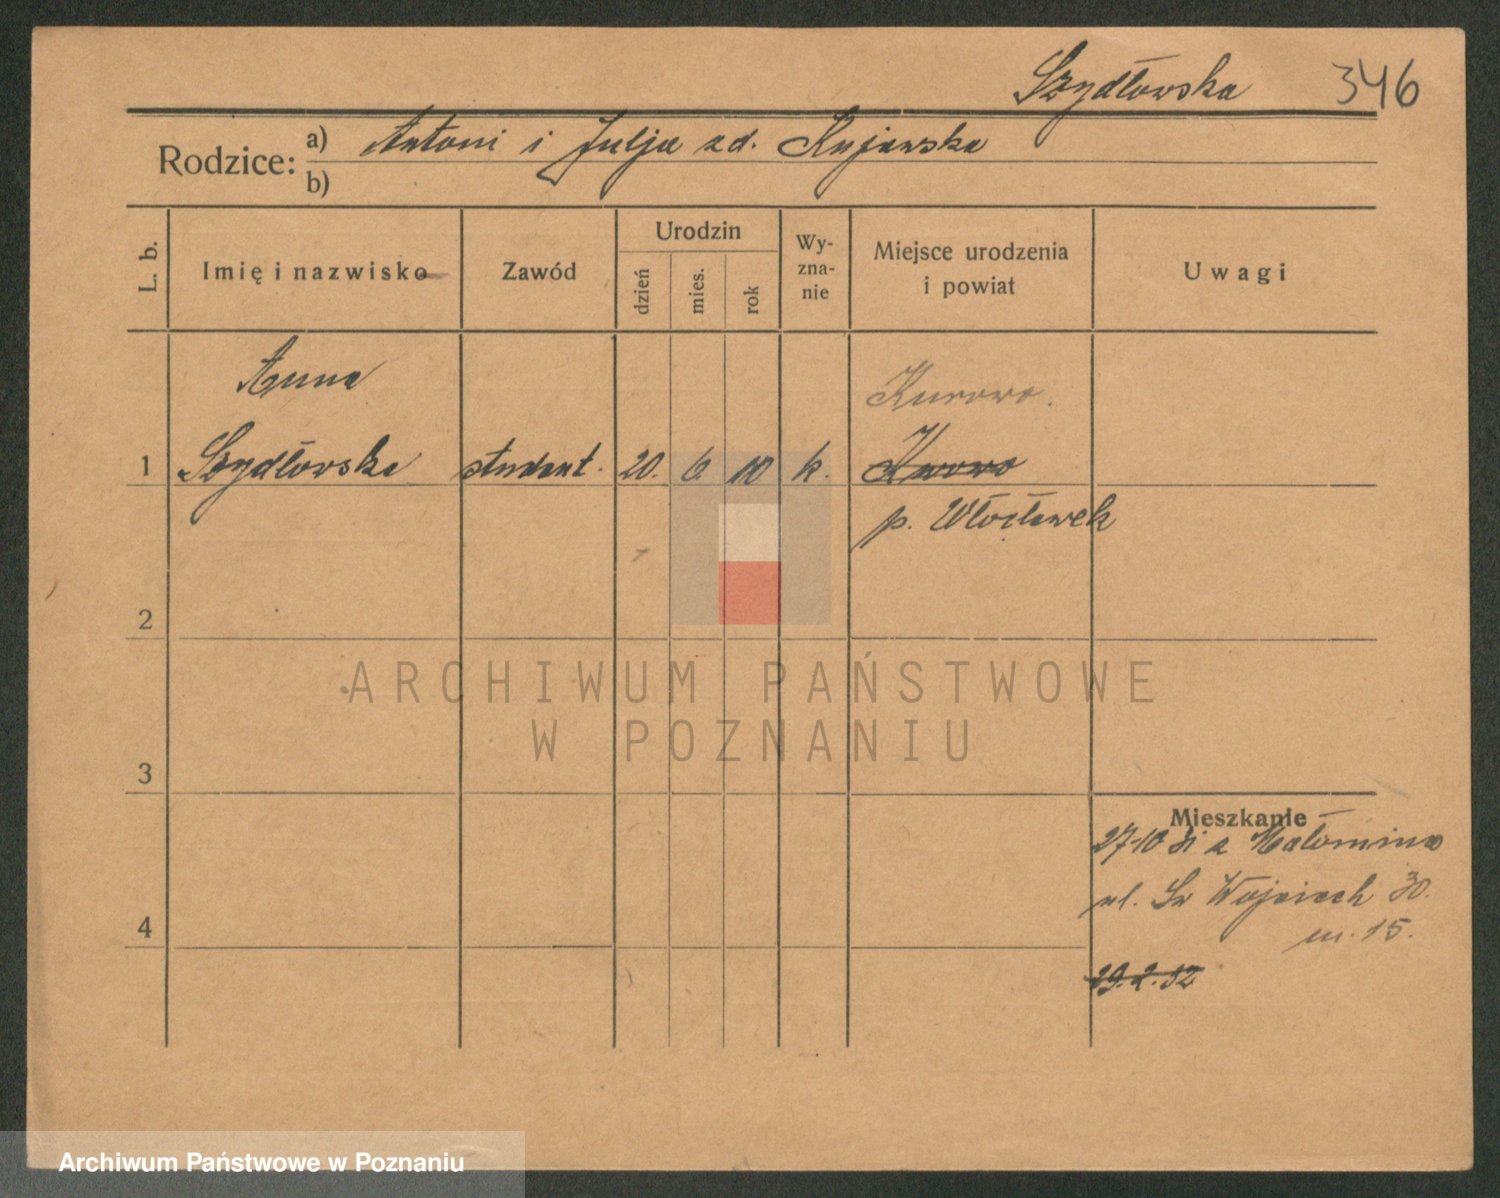 Szydłowska 346
Rodzice: a) Antoni i Julja zd. Kujawska
b)
L. b.
Imię i nazwisko
Zawód
Urodzin
dzień
mies.
rok
Wy-
zna-
nie
Miejsce urodzenia
i powiat
Uwagi
Anna
Kurowo.
1 Szydłowska student. 20. 6. 10 k. Kurowo
p. Włocławek
2
ARCHIWUM PAŃSTWOWE
W POZNANIU
3
Mieszkanie
27-10 31 z
ul. Św Wojciech 30.
m. 15.
4
29.2.32
Archiwum Państwowe w Poznaniu